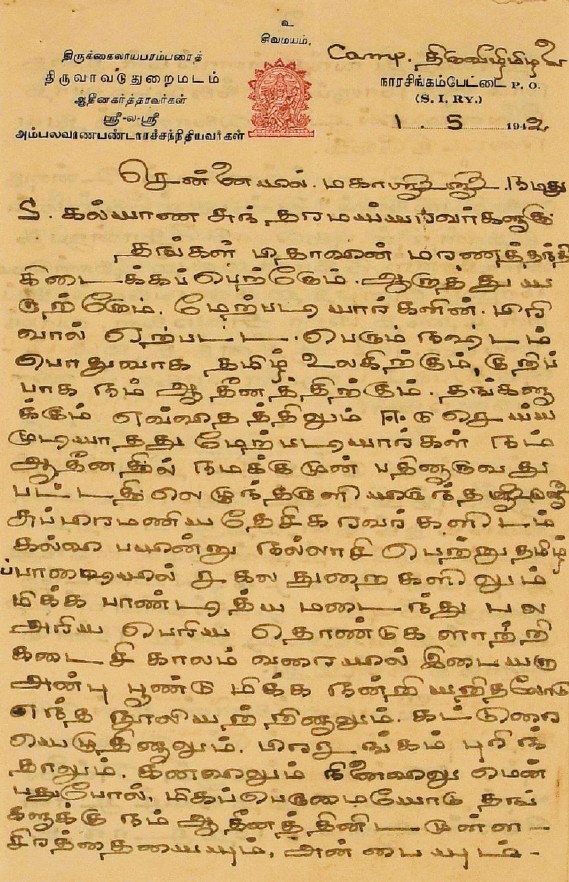 உ
சிவமயம்.
திருக்கைலாயபரம்பரைத்
திருவாவடுதுறைமடம்
ஆதீனகர்த்தாவர்கள்
ஸ்ரீ-ல-ஸ்ரீ
அம்பலவாணபண்டாரச்சந்நிதியவர்கள்
Camp. திருவீழிமிழலை
நாரசிங்கம்பேட்டை P. O.
(S. I. RY.)
1 . 5 1942
சென்னையில்.
S. கல்யாண சுந்தரமய்யரவர்களுக்கு
தங்கள் பிதாவின் மரணத்தந்தி
கிடைக்கப்பெற்றோம். ஆறாத்துய
ருற்றோம். மேற்படியார்களின். பிரி
வால் ஏற்பட்ட. பெரும் நஷ்டம்
பொதுவாக தமிழ் உலகிற்கும், குறிப்
பாக நம் ஆதீனத்திற்கும். தங்களு
க்கும் எவ்விதத்திலும் ஈடு செய்ய
முடியாதது மேற்படியார்கள் நம்
ஆதீனதில் நமக்குமுன் பதினாறாவது
பட்டதிலெழுந்தருளியிருந்த
சுப்பிரமணிய தேசிகரவர்களிடம்
கல்வி பயின்று நல்லாசி பெற்று தமிழ்
ப்பாஷையில் சகல துறைகளிலும்
மிக்க பாண்டித்ய மடைந்து பல
அரிய பெரிய தொண்டுக ளாற்றி
கடைசி காலம் வரையில் இடையறா
அன்பு பூண்டு மிக்க நன்றியறிதலோடு
எந்த நூலியற்றினாலும். கட்டுரை
யெழுதினாலும். பிரசங்கம் புரிந்
தாலும். கனவிலும் நினைவிலு மென்
பதுபோல். மிகப்பெருமையோடு தங்
களுக்கு நம் ஆதீனத்தினிட முள்ள -
சிரத்தையையும், அன்பையும் -